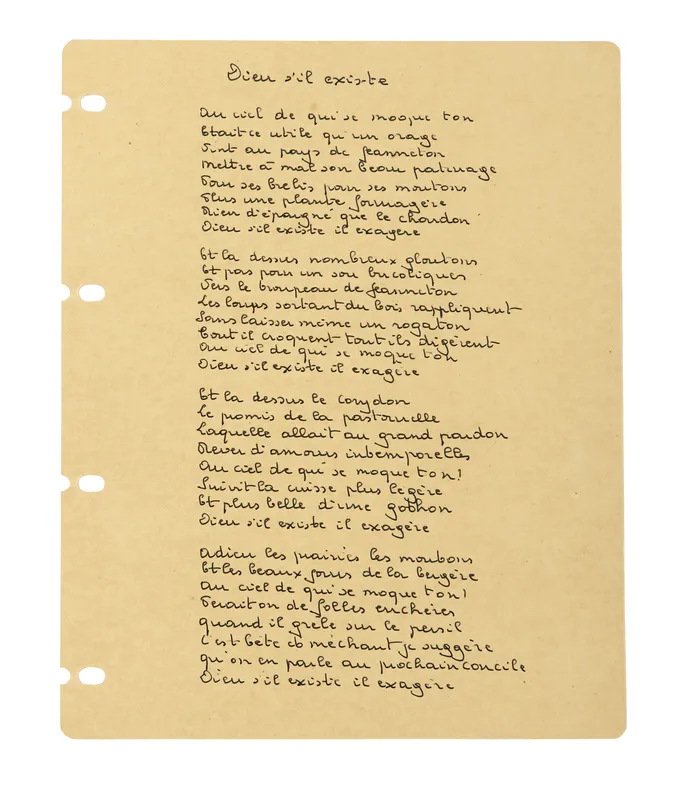 Dieu s'il existe
Au ciel de qui se moque ton
Etait ce utile qu'un orage
Vint au pays de Jeanneton
Mettre à mal son beau paturage
Pour ses brebis pour ses moutons
Plus une plante fourragère
Rien d'épargné que le chardon
Dieu s'il existe il exagere
Et la dessus nombreux gloutons
Et pas pour un sou bucoliques
Vers le troupeau de Jeanneton
Les loups sortant du bois rappliquent
Sans laisser même un rogaton
Tout il croquent tout ils digèrent
Au ciel de qui se moque ton
Dieu s'il existe il exagère
Et la dessus le corydon
Le promis de la pastourelle
Laquelle allait au grand pardon
Rever d'amours intemporelles
Au ciel de qui se moque ton!
Suivit la cuisse plus legère
Et plus belle d'une gothon
Dieu s'il existe il exagère
Adieu les prairies les moutons
Et les beaux jours de la bergère
Au ciel de qui se moque ton!
Ferait on de folles enchères
quand il grêle sur le persil
C'est bête et méchant je suggère
qu'on en parle au prochain concile
Dieu s'il existe il exagère